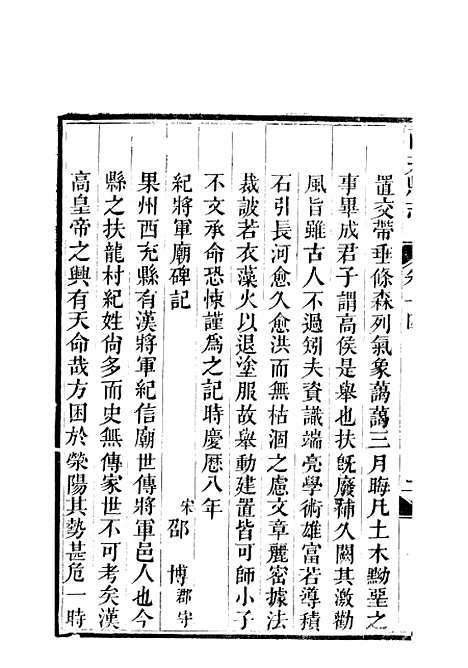 置交帶垂條森列氣象藹藹三月晦凡土木黝堊之
事畢成君子謂高侯是舉也扶旣廢補久闕其激勸
風旨雖古人不過矧夫資識端亮學術雄富若導積
石引長河愈久愈洪而無枯涸之慮文章麗密據法
裁詖若衣藻火以退塗服故舉動建置皆可師小子
不文承命恐悚謹為之記時慶歷八年
紀將軍廟碑記
宋邵博郡守
果州西充縣有漢將軍紀信廟世傳將軍邑人也今
縣之扶龍村紀姓尙多而史無傳家世不可考矣漢
高皇帝之興有天命哉方困於滎陽其勢甚危一時